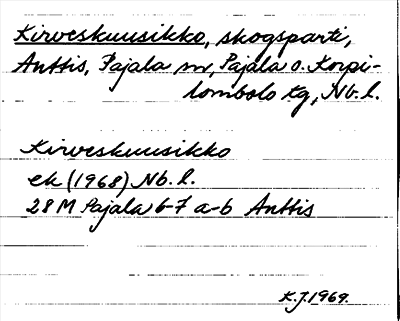 Kirveskuusikko, skogsparti,
Anttis, Pajala sn, Pajala o. Korpi-
lombolo tg, Nb. l.
Kirveskuusikko
ek (1968) Nb. l.
28 M Pajala 6-7 a-b Anttis
K.J. 1969.